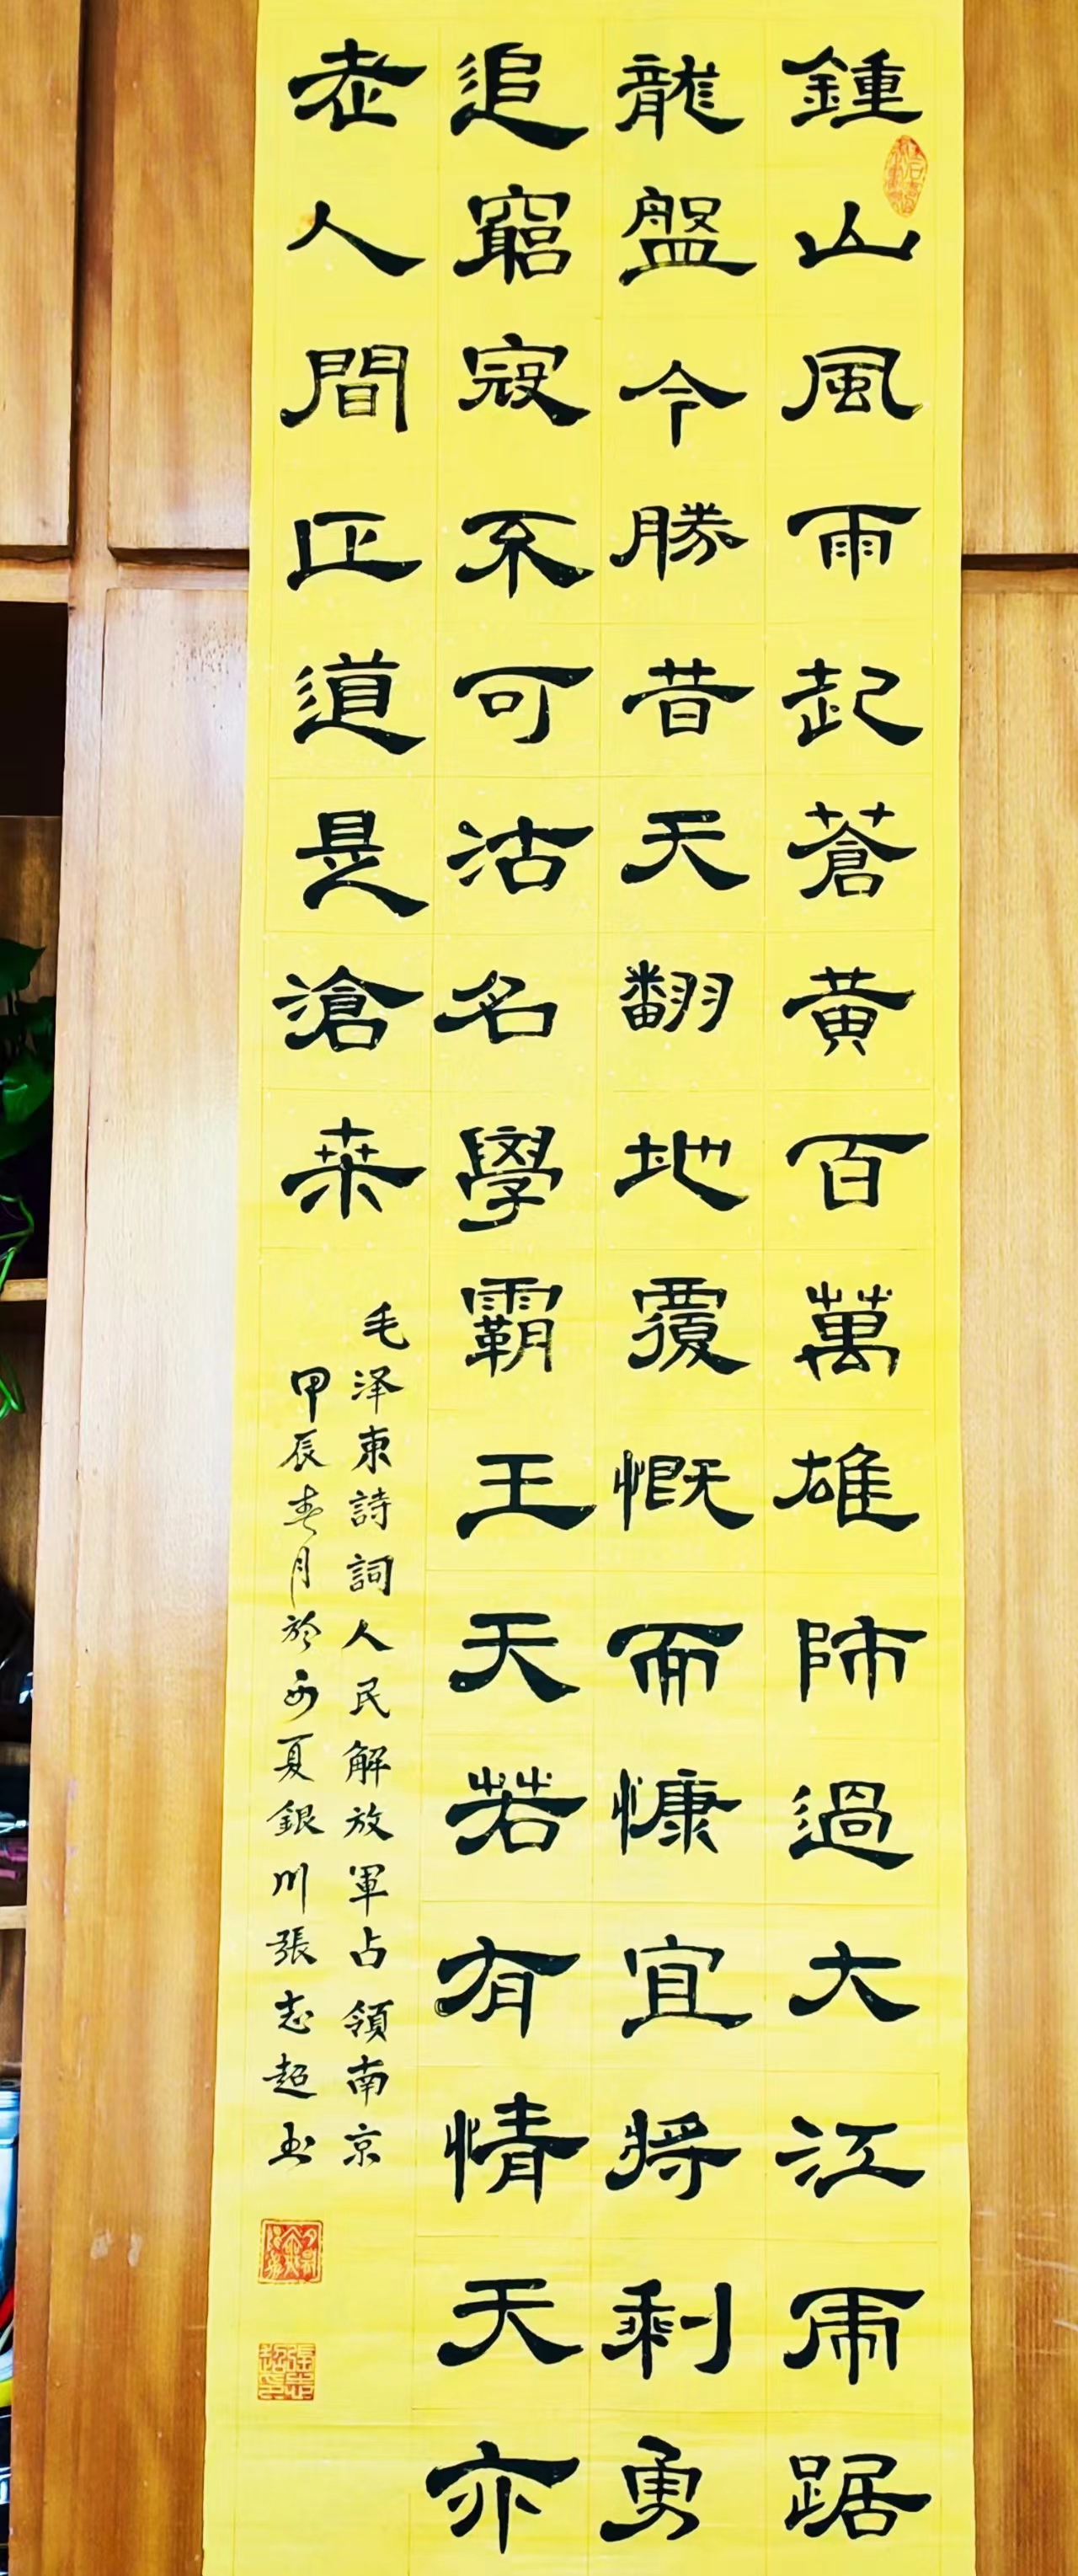 鍾山風雨起蒼黄百萬雄師過大江虎踞
龍盤今勝昔天翻地覆慨而慷宜將剩勇
追窮寇不可沽名學霸王天若有情天亦
老人間正道是滄桑
毛泽東詩詞人民解放軍占領南京
甲辰春月於寧夏銀川張志超書